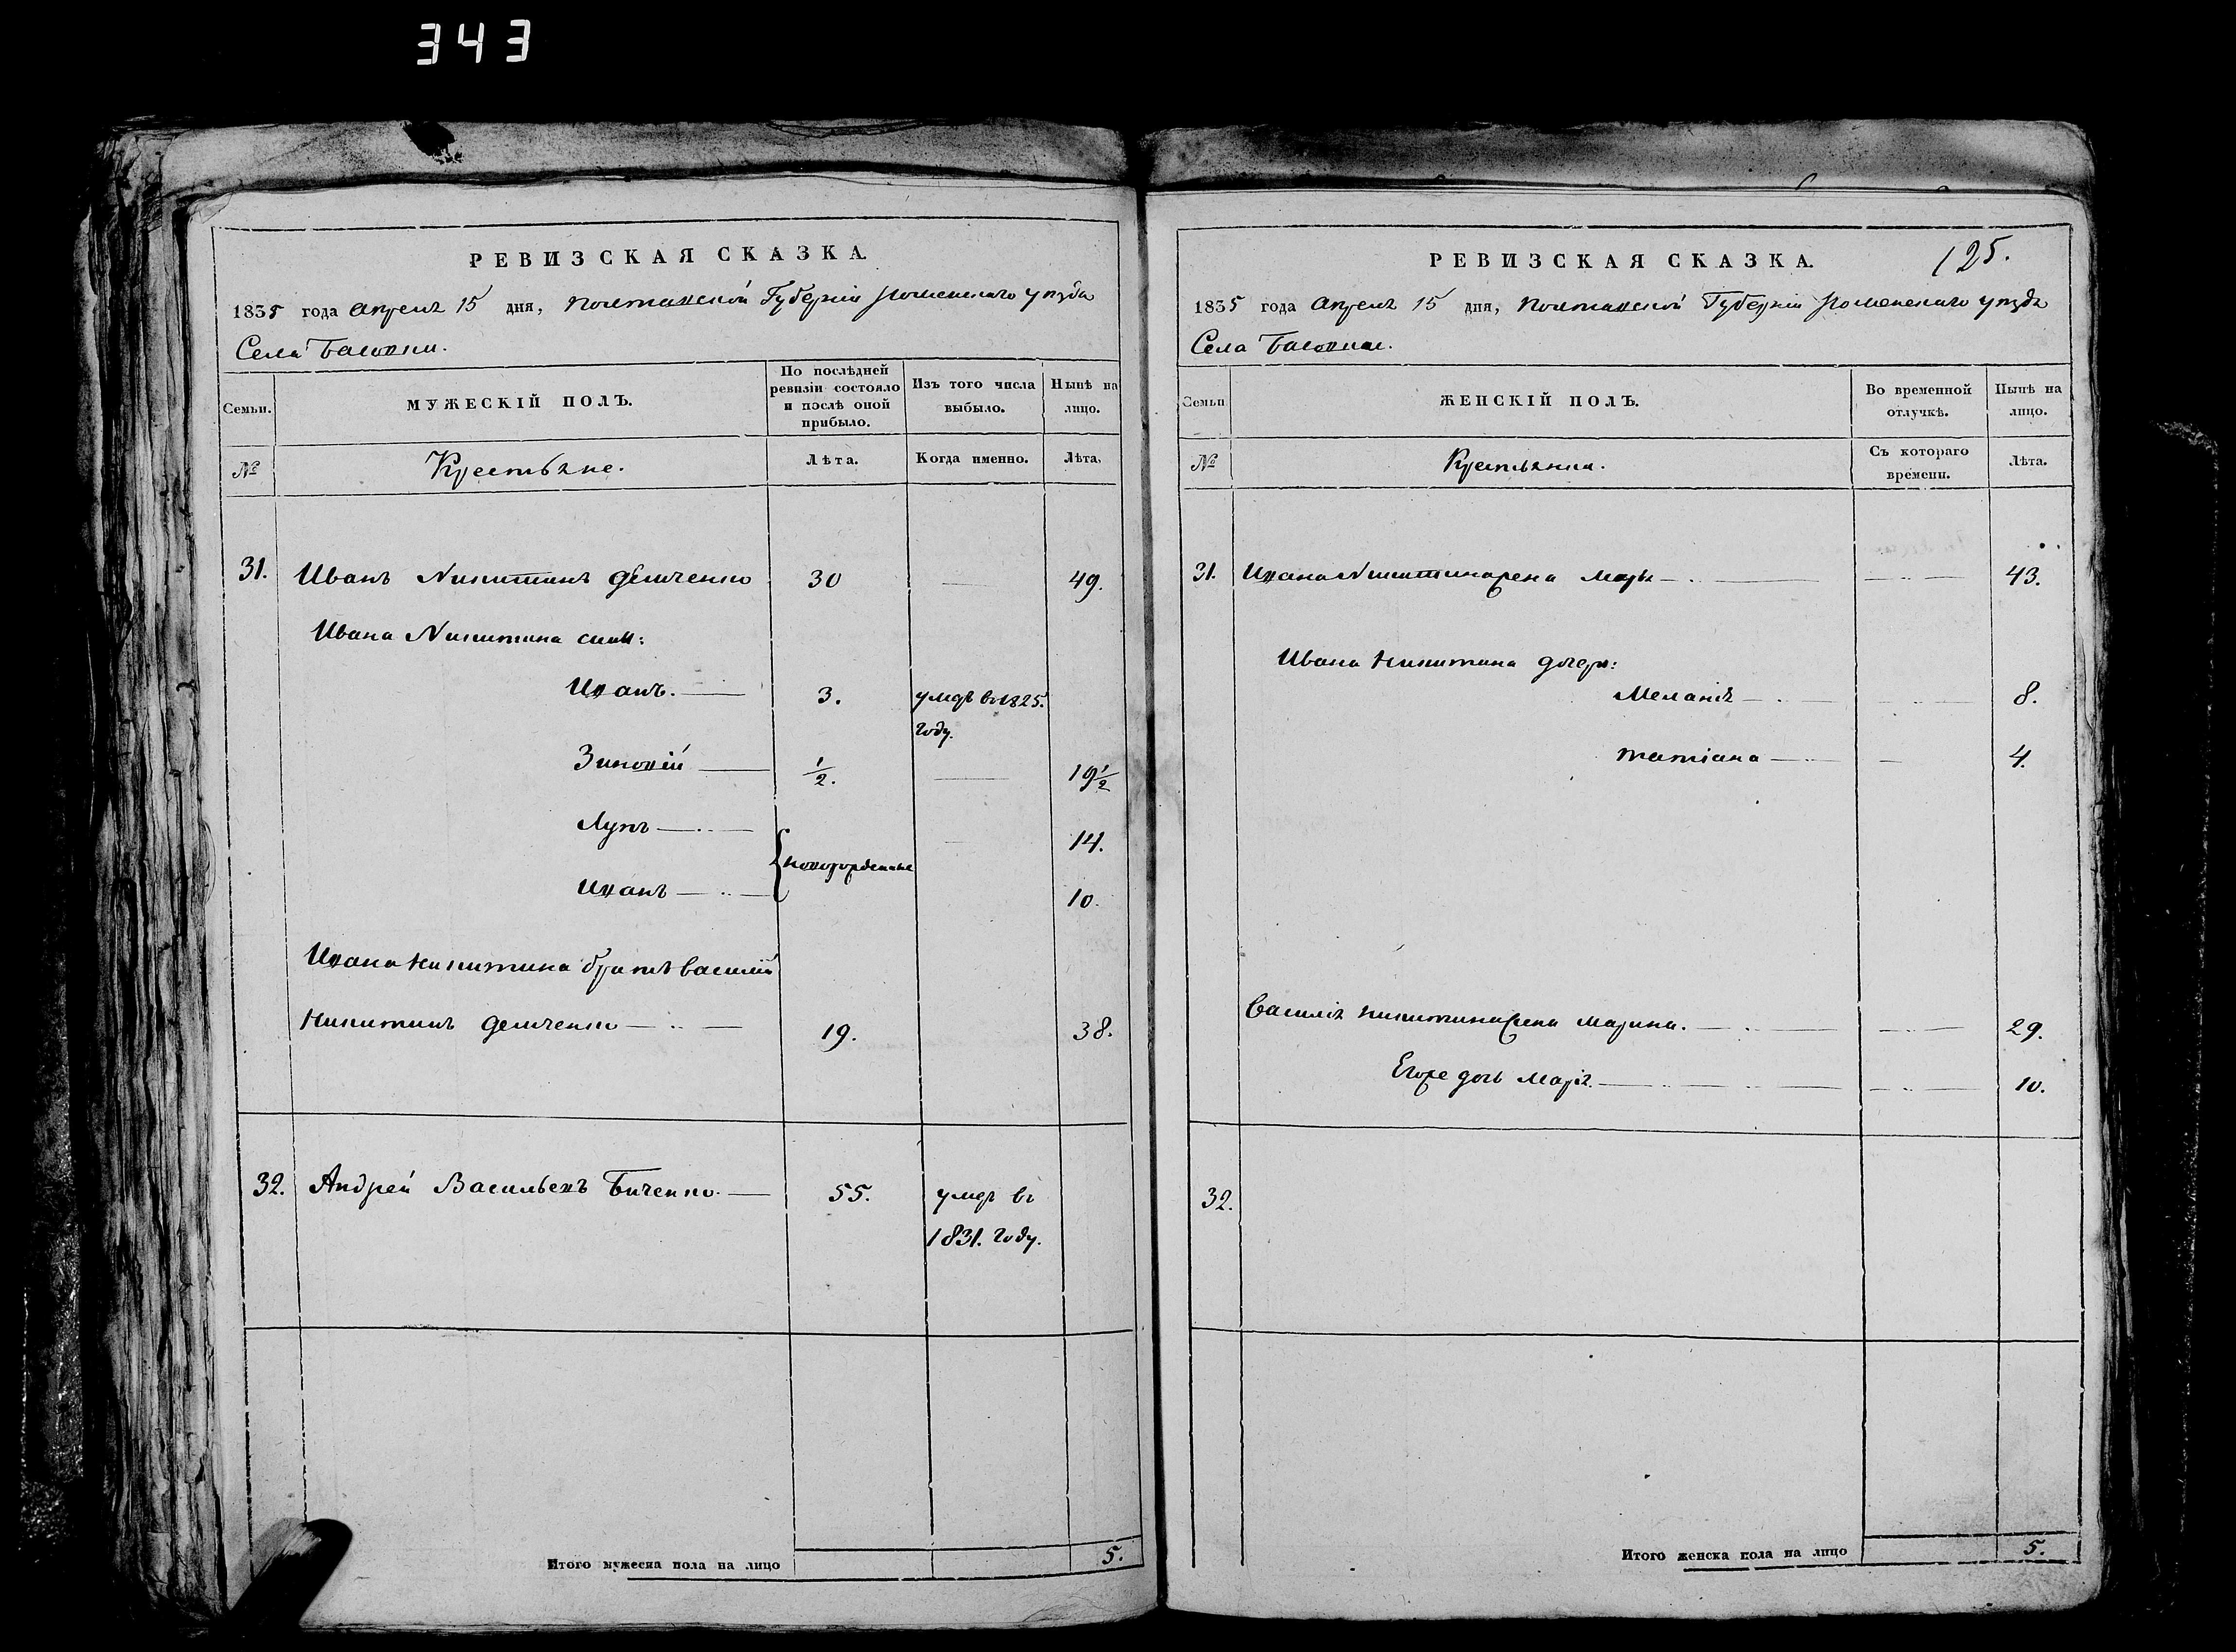 343
РЕВИЗСКАЯ СКАЗКА.
1835 года Апреля 15 дня, Полтавской Губернии Роменского уезда
Села Басовки.
Семьи.
МУЖЕСКІЙ ПОЛЪ.
По послѣдней ревизіи состояло и послѣ оной прибыло.
Изъ того числа выбыло.
Нынѣ на лицо.
№
Крестьяне.
Лѣта.
Когда именно.
Лѣта.
31. Иванъ Никитинъ Демченко 30 — 49.
Ивана Никитина сини:
Иванъ. — 3. умеръ в 1825.
году.
Зиновій — 1/2. — 19 1/2
Лупъ — 14.
новорожденные
Иванъ — 10.
Ивана Никитина братъ Василій
Никитинъ Демченко — 19. 38.
32. Андрей Васильевъ Биченко. — 55. умеръ въ
1831. году.
Итого мужеска пола на лицо 5.
РЕВИЗСКАЯ СКАЗКА.
125.
1835 года Апреля 15 дня, Полтавской Губерніи Роменского уезда
Села Басовки.
Семьи
ЖЕНСКІЙ ПОЛЪ.
Во временной отлучкѣ.
Нынѣ на лицо.
№
Крестьянки.
Съ котораго времени.
Лѣта.
31. Ивана Никитина жена Марья — 43.
Ивана Никитина дочери:
Меланія — 8.
Татіана — 4.
Василія Никитина жена Марина. — 29.
Его же дочь Марія. — 10.
32.
Итого женска пола на лицо 5.